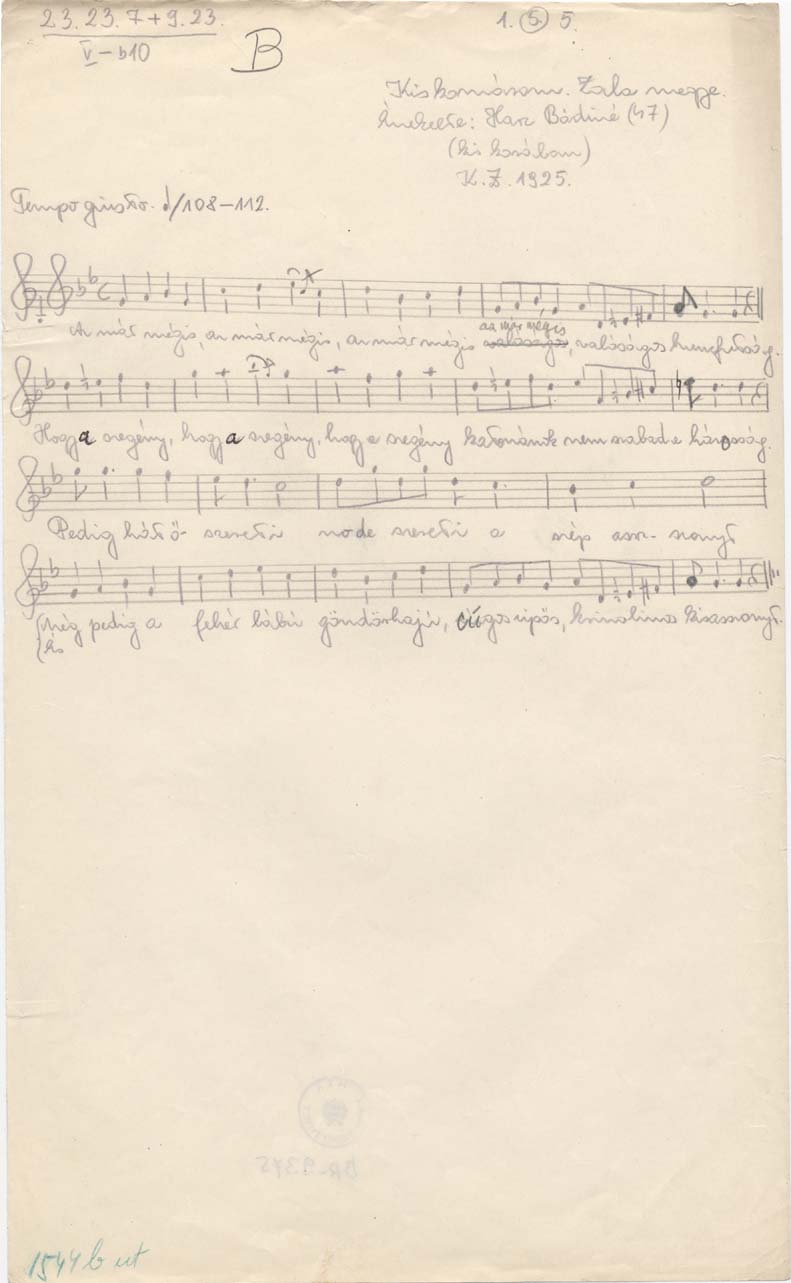 23. 23. 7+9. 23.
V – b10
B
1. 5. 5.
Kiskomárom. Zala megye.
Énekelte: Bódiné (47)
K. Z. 1925.
Tempo giusto. /108–112.
az már mégis
Az már mégis, az már mégis, az már mégis valóságos, valóságos huncfutság.
Hogy a szegény, hogy a szegény, hogy a szegény katonának nem szabad a házosság.
Pedig hát ő szereti no de szereti a szép asz- szonyt
Még pedig a fehér lábú göndörhajú, cúgos cipős, krinolinos kisasszonyt.
és
BR-9375
1544 b ut